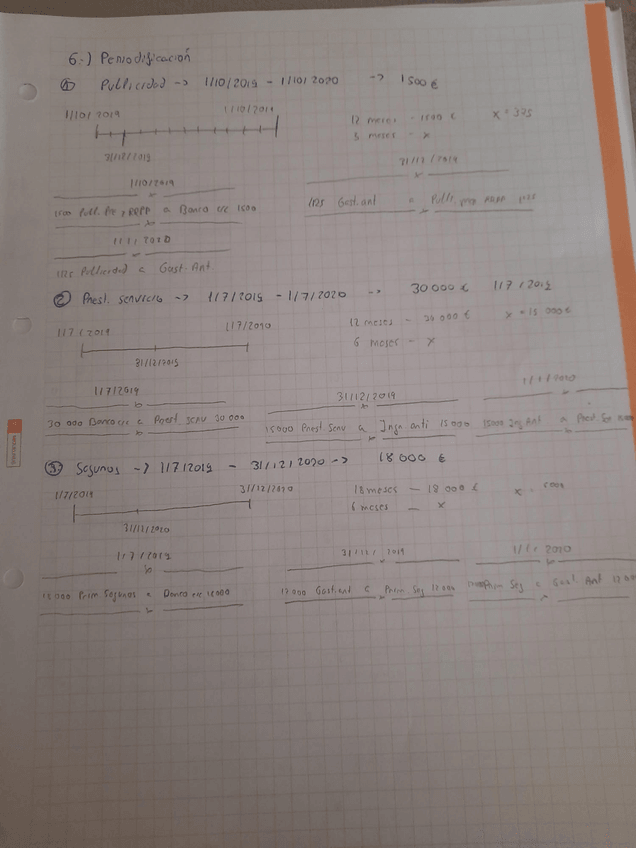 6.-) Periodificación
① Publicidad -> 1/10/2019 - 1/10/2020 -> 1500 €
1/10/2019 1/10/2019
31/12/2019
12 meses - 1500 € x = 375
3 meses - x
1/10/2019
1500 Publ. Pro y RRPP a Banco c/c 1500
31/12/2019
1125 Gast. ant a Publi, pro RRPP 1125
1/1/2020
1125 Publicidad a Gast. Ant
② Prest. servicio -> 1/7/2019 - 1/7/2020 -> 30 000 € 1/7/2019
1/7/2019 1/7/2020
31/12/2019
12 meses - 30 000 € x = 15 000 €
6 meses - x
1/7/2019
30 000 Banco c/c a Prest. serv 30 000
31/12/2019
15000 Prest Serv a Ingr anti 15 000
1/1/2020
15000 Ing Ant a Prest. Se
③ Seguros -> 1/7/2019 - 31/12/2020 -> 18 000 €
1/7/2019 31/12/2020
31/12/2020
18 meses - 18 000 € x = 6000
6 meses - x
1/7/2019
18 000 Prim Seguros a Banco c/c 18000
31/12/2019
12 000 Gast. ant a Prim Seg 12 000
1/1/2020
Prim Seg a Gast. Ant 12 000